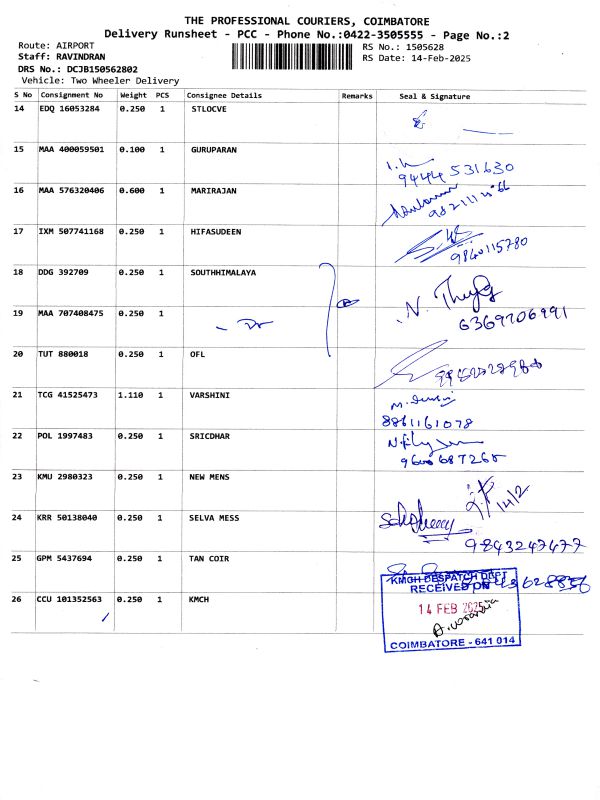 THE PROFESSIONAL COURIERS, COIMBATORE
Delivery Runsheet - PCC - Phone No.:0422-3505555 - Page No.:2
Route: AIRPORT
RS No.: 1505628
Staff: RAVINDRAN
RS Date: 14-Feb-2025
DRS No.: DCJB150562802
Vehicle: Two Wheeler Delivery
S No Consignment No Weight PCS Consignee Details Remarks Seal & Signature
14 EDQ 16053284 0.250 1 STLOCVE
15 MAA 400059501 0.100 1 GURUPARAN
9444 531630
16 MAA 576320406 0.600 1 MARIRAJAN
17 IXM 507741168 0.250 1 HIFASUDEEN
9840115780
18 DDG 392709 0.250 1 SOUTHHIMALAYA
19 MAA 707408475 0.250 1
6369706991
20 TUT 880018 0.250 1 OFL
21 TCG 41525473 1.110 1 VARSHINI
8861161078
22 POL 1997483 0.250 1 SRICDHAR
9600687265
23 KMU 2980323 0.250 1 NEW MENS
14/2
24 KRR 50138040 0.250 1 SELVA MESS
9843247477
25 GPM 5437694 0.250 1 TAN COIR
26 CCU 101352563 0.250 1 KMCH
KMCH DESPATCH DEPT
RECEIVED ON
14 FEB 2025
COIMBATORE - 641 014